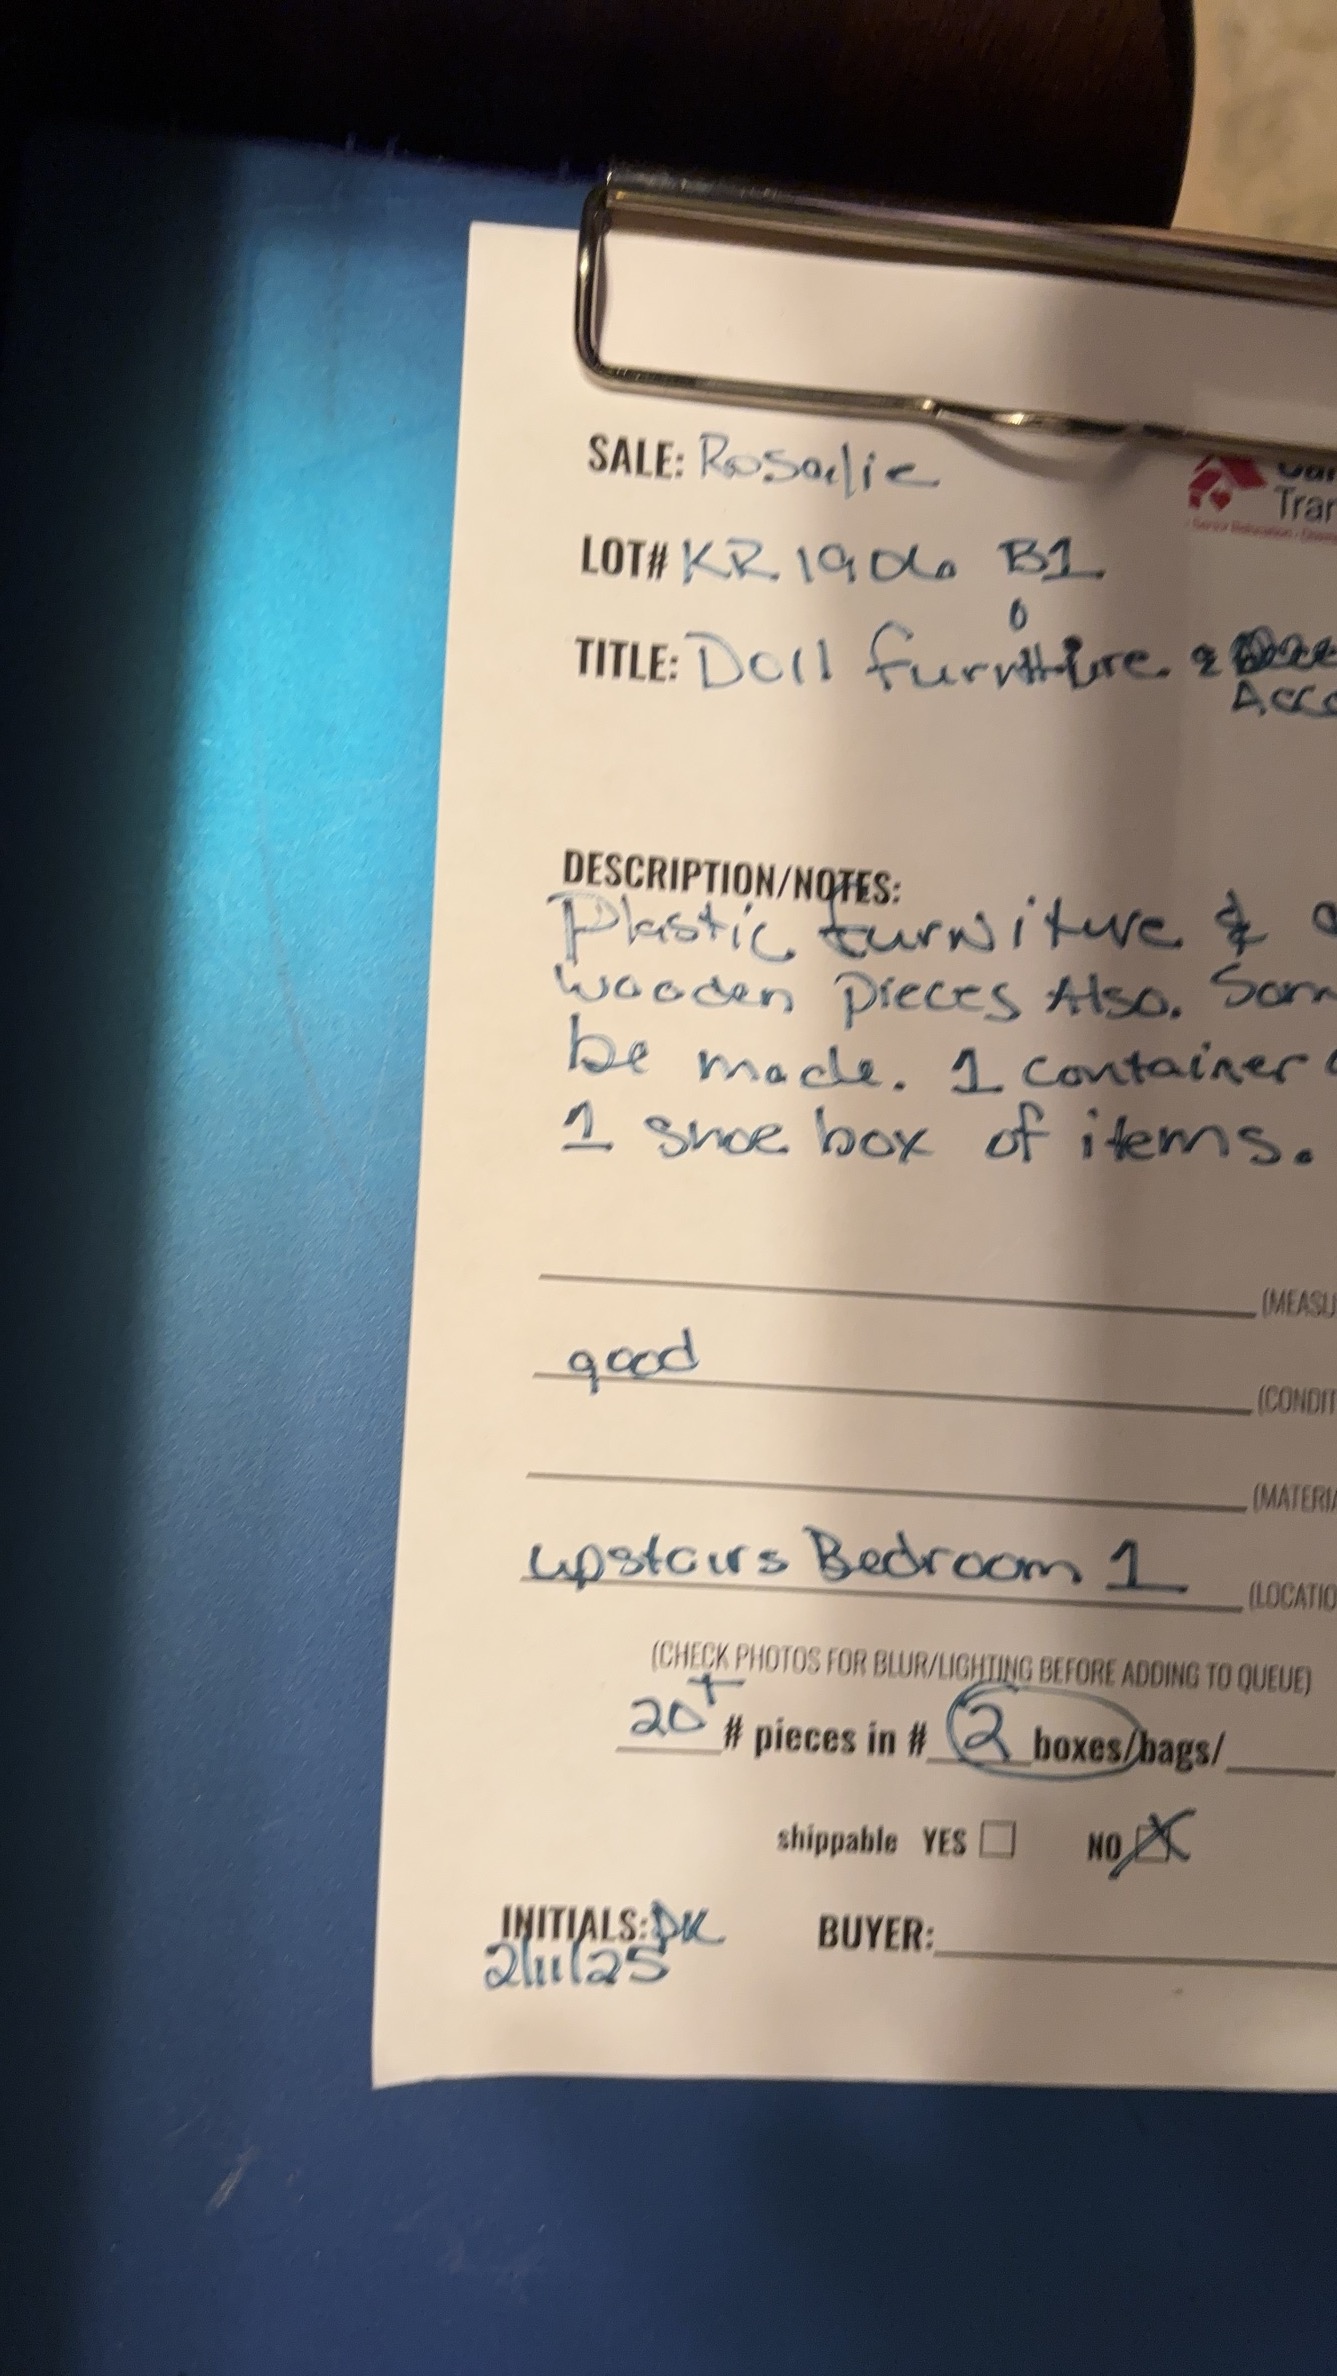 SALE: Rosalie
Tran
LOT# KR 1906 B1
TITLE: Doll furniture &
Acc
DESCRIPTION/NOTES:
Plastic furniture &
wooden pieces Also. Som
be made. 1 container
1 shoe box of items.
(MEASU
good
(CONDIT
(MATERIA
upstairs Bedroom 1
(LOCATIO
(CHECK PHOTOS FOR BLUR/LIGHTING BEFORE ADDING TO QUEUE)
20+ # pieces in # 2 boxes/bags/
shippable YES NO
INITIALS: DK BUYER:
2/11/25